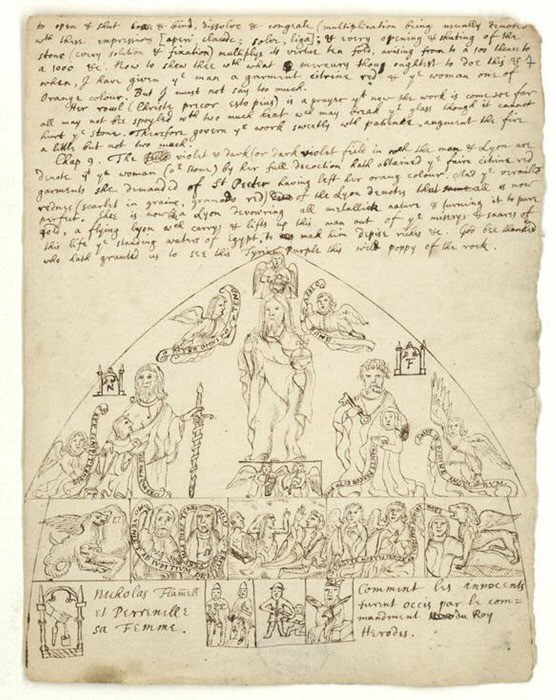 to open & shut loose & bind, dissolve & congeale (multiplication being usually denoted
wth these expressions [aperi, claude; solve, liga]; & every opening & shutting of the
stone (every solution & fixation) multiplys its virtue ten fold, arising from 10 to 100 thence to
a 1000 &c. Now to shew thee wth what mercury thou oughtest to doe this &
when, I have given ye man a garment citrine red & ye woman one of
Orange colour. But I must not say too much.
Her rowl (Christe precor esto pius) is a prayer yt now the work is come soe far
all may not be spoyled wth two much heat wch may break ye glass though it cannot
hurt ye stone. Therefore govern ye work sweetly wth patience augment the fire
a little but not two much.
Chap 9. The violet & dark (or dark violet field in wch the man & Lyon are
denote yt ye woman (or stone) by her full decoction hath obtained ye faire citrine red
garments she demanded of St Peter having left her orang colour. And ye vermilio
rednes (scarlet in graine, granado red) of the Lyon denotes that all is now
perfect. She is now a Lyon devowring all metallick nature & turning it to pure
God, a flying Lyon wch carrys & lifts up this man out of ye miserys & snares of
this life ye standing waters of Egypt, to make him depise riches &c. God bee thanked
who hath granted us to see this Tyrian purple this wild poppy of the rock.
N
F
Nicholas Flamell
et Perrenelle
sa Femme.
Comment les innocents
furent occis par le com-
mandment du Roy
Herodes.